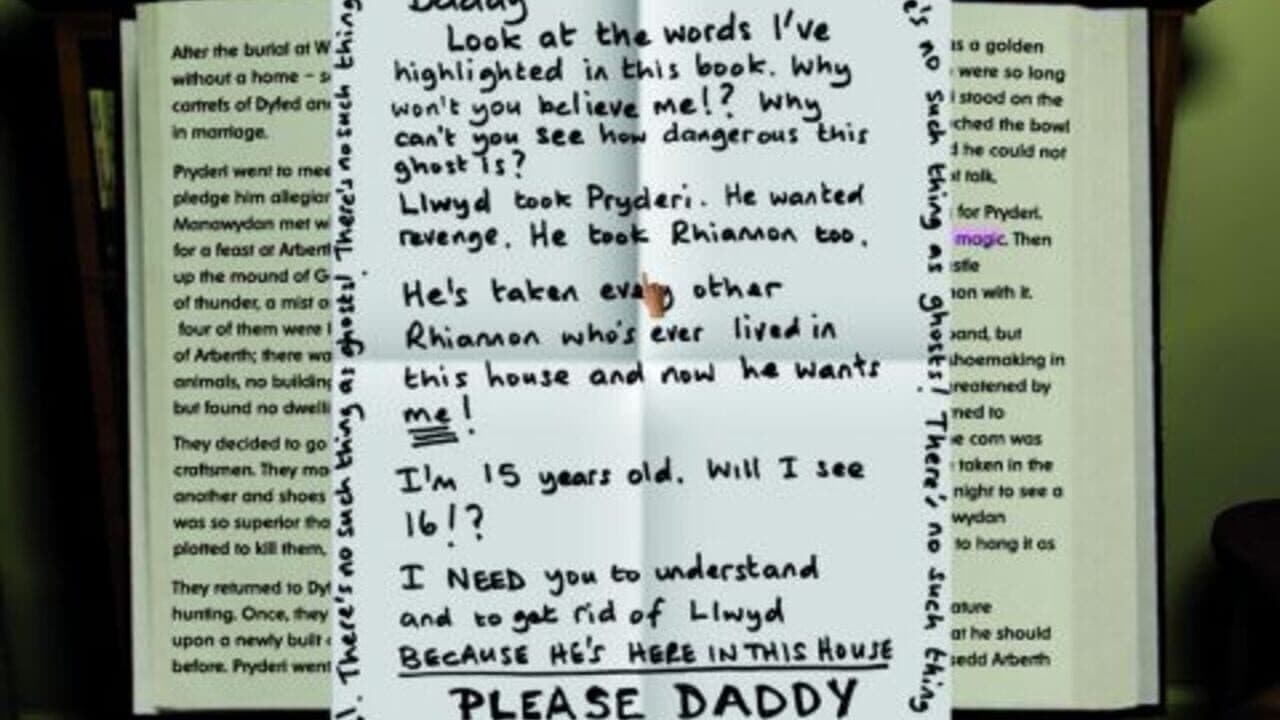 After the burial at W
without a home – s
cantrefs of Dyfed an
in marriage.
Pryderi went to mee
pledge him allegian
Manawydan met w
for a feast at Arbert
up the mound of G
of thunder, a mist o
four of them were l
of Arberth; there wa
animals, no building
but found no dwelli
They decided to go
craftsmen. They ma
another and shoes
was so superior tha
plotted to kill them,
They returned to Dyf
hunting. Once, they
upon a newly built
before. Pryderi went
There's no such thing as ghosts! There's no such thing
Daddy
Look at the words I've
highlighted in this book. Why
won't you believe me!? Why
can't you see how dangerous this
ghost is?
Llwyd took Pryderi. He wanted
revenge. He took Rhiannon too.
He's taken every other
Rhiannon who's ever lived in
this house and now he wants
me!
I'm 15 years old. Will I see
16!?
I NEED you to understand
and to get rid of Llwyd
BECAUSE HE'S HERE IN THIS HOUSE
PLEASE DADDY
e's no such thing as ghosts! There's no such thing
as a golden
were so long
stood on the
ched the bowl
he could not
talk.
for Pryderi.
magic. Then
stle
on with it.
band, but
shoemaking in
reatened by
ned to
e corn was
taken in the
night to see a
wydan
to hang it as
ature
at he should
sedd Arberth